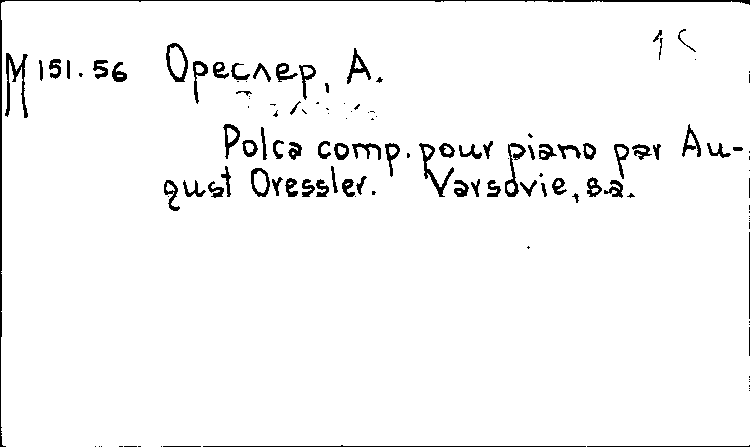 15
М 151.56 Ореслер, А.
Polca comp. pour piano par Au-
gust Oressler. Varsovie, s.a.